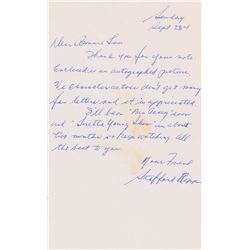 Sunday
Sept 28th
Dear Bonnie Lou
Thank you for your note.
Enclosed is an autographed picture.
We character actors don't get many
fan letters and it is appreciated.
I'll be on "Ben Casey" soon
and "Loretta Young Show" in about
two months so keep watching. All
the best to you
Your Friend
Stafford Repp